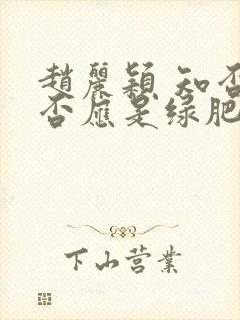 趙麗穎 知否
否應是绿肥
下山营業